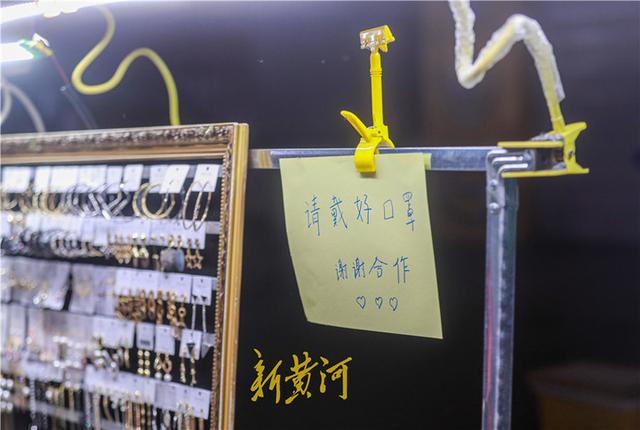 请戴好口罩
谢谢合作
♡♡♡
新黄河